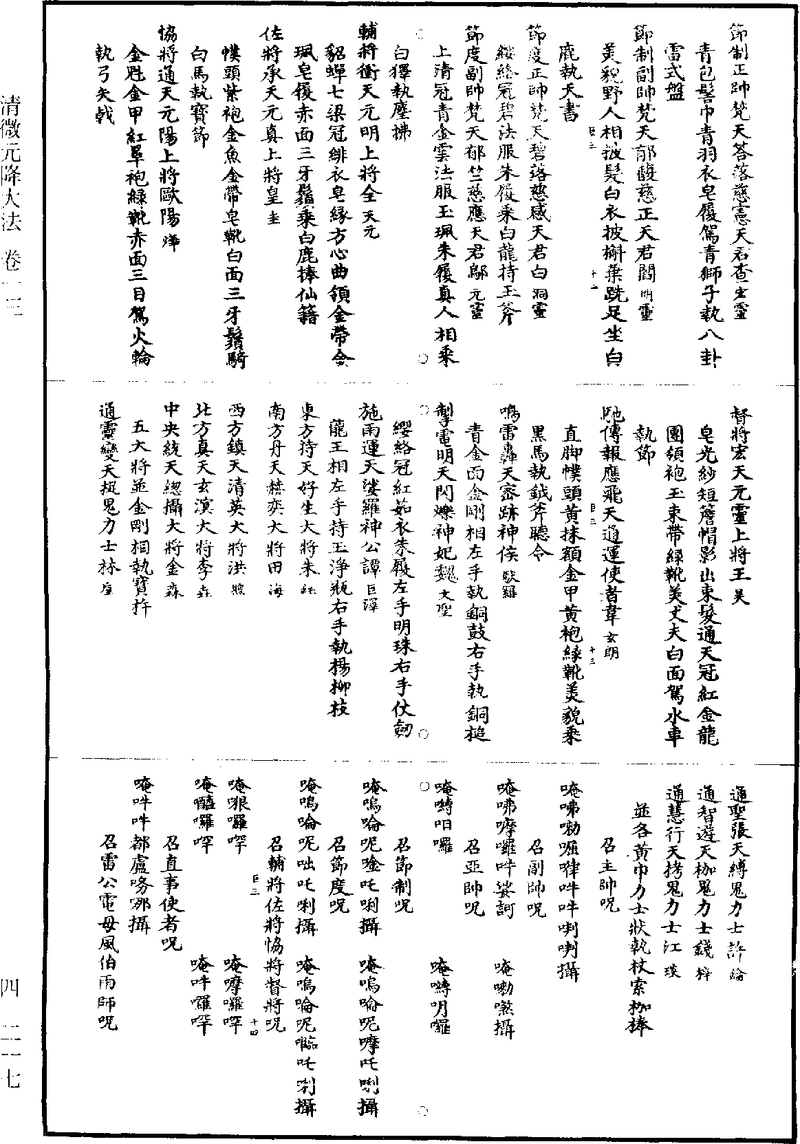 節制正帥梵天荅落慈憲天君查生靈
青包髻巾青羽衣皂履駕青獅子執八卦
雷式盤
節制副帥梵天郁馥慈正天君閻明靈
美貌野人相披髮白衣披槲葉跣足坐白
鹿執天書
節度正帥梵天碧落慈感天君白洞靈
緌絡冠碧法服朱履乘白龍持玉斧
節度副帥梵天郁竺慈應天君鄔元靈
上清冠青金雲法服玉珮朱履真人相乘
白獰執麈拂
輔將衝天元明上將全天元
貂蟬七梁冠緋衣皂緣方心曲領金帶金
珮皂履赤面三牙鬚乘白鹿捧仙籍
佐將承天元真上將皇圭
幞頭紫袍金魚金帶皂靴白面三牙鬚騎
白馬執寶節
協將通天元陽上將歐陽燁
金胜金甲紅罩袍綠靴赤面三目駕火輪
執弓矢戟
督將宏天元靈上將王昊
皂光紗短簷帽影出束髮通天冠紅金龍
團領袍玉束帶綠靴美丈夫白面駕水車
執節
馳傳報應飛天道運使者韋玄明
直脚幞頭黃抹額金甲黃袍綠靴美貌乘
黑馬執鉞斧聽令
鳴雷轟天密跡神侯馱羅
青金面金剛相左手執銅鼓右手執銅槌
掣電明天閃爍神妃魏文聖
纓絡冠紅茹衣朱履左手明珠右手仗劒
施雨運天娑羅神公譚巨澤
龍王相左手持玉淨瓶右手執楊柳枝
東方持天好生大將朱
南方丹天赫奕大將田海
西方鎮天清英大將洪
北方真天玄溟大將李垚
中央統天緫攝大將金森
五大將並金剛相執寶杵
通靈變天捉鬼力士林
通聖張天縛鬼力士許綸
通智遊天枷鬼力士錢梓
通慧行天拷鬼力士江琰
並各黃巾力士狀執杖索枷棒
召主帥呪
唵㖇嘞嚸嘩吽吽唎唎攝
召副帥呪
唵㖇嚤囉吽娑訶　唵嘞㗛攝
召亞帥呪
唵嚩呾囉　唵嚩𠯪囉
召節制呪
唵嗚㖮呢唫吒唎攝　唵嗚㖮呢嚤吒唎攝
召節度呪
唵嗚㖮呢咄吒唎攝　唵嗚㖮呢㘑吒唎攝
召輔將佐將恊將督將呪
唵哏囉㘕　唵嚤囉㘕
唵囉㘕　唵吽囉㘕
召直事使者呪
唵吽吽都盧咯哪攝
召雷公電母風伯雨師呪
清微元降大法　卷一三
四　二一七